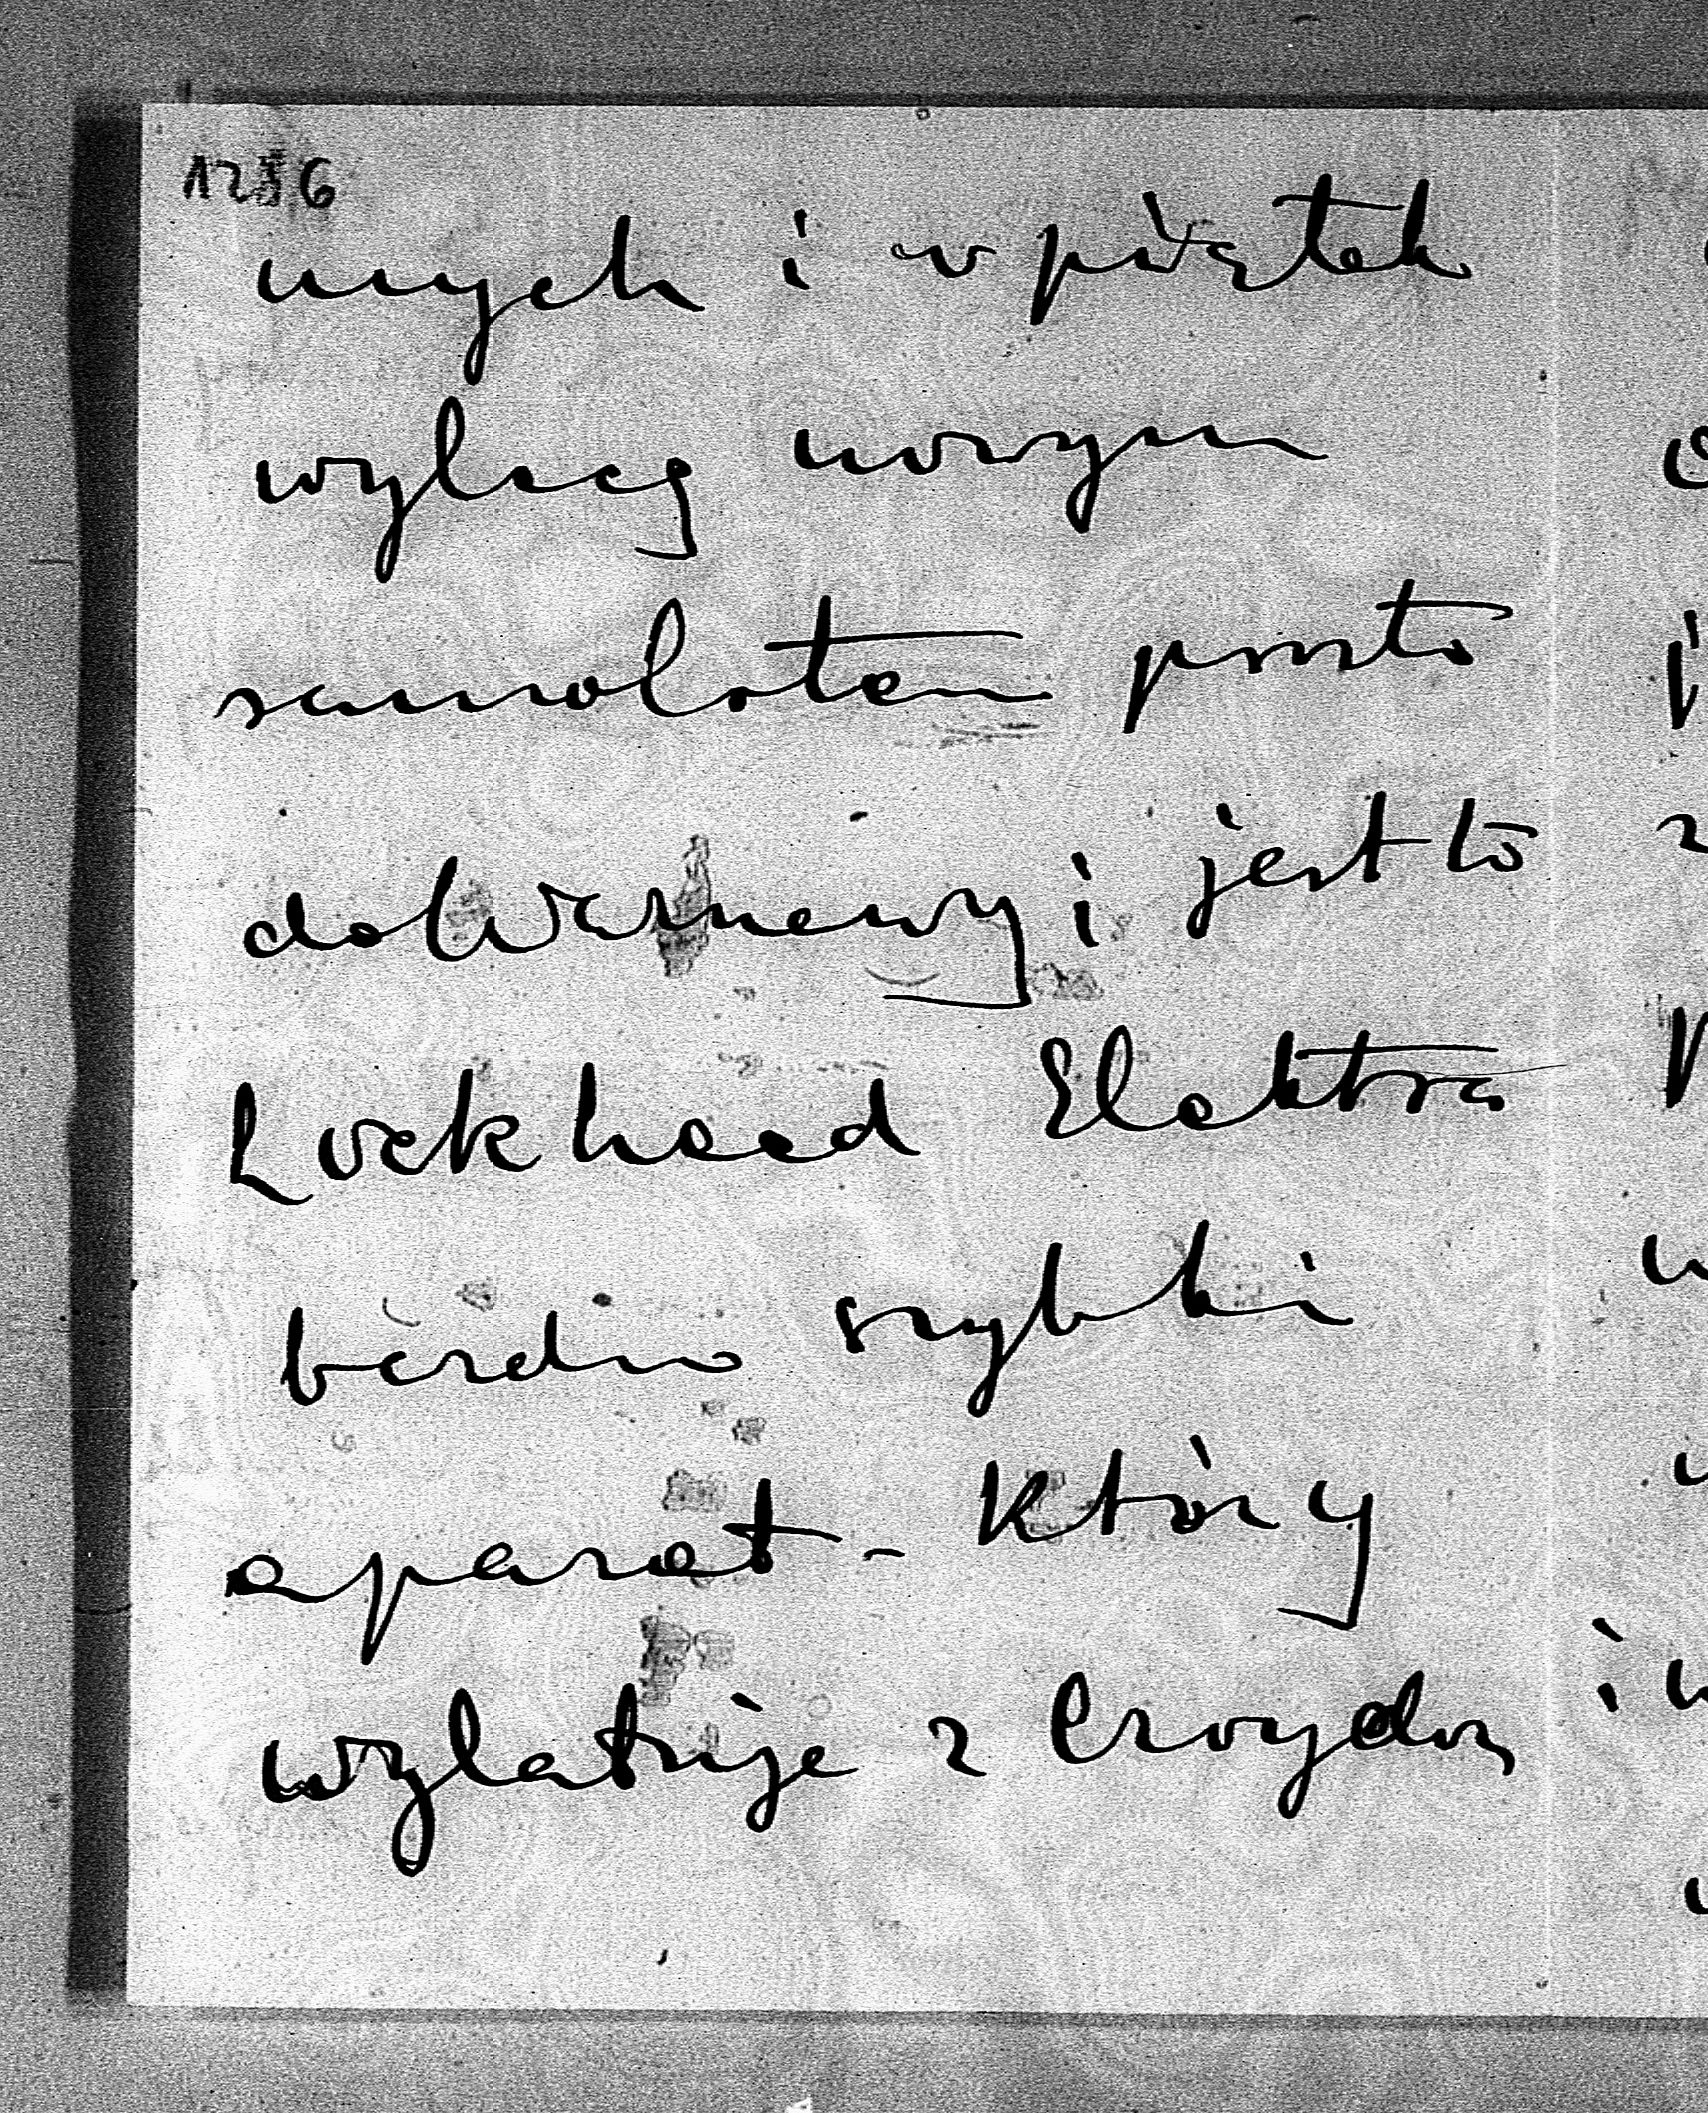 12 6
nych i w piątek
wylecę nowym
samolotem prosto
do Warszawy i jest to
Lockheed Elektra
bardzo szybki
aparat - który
wylatuje z Croydon